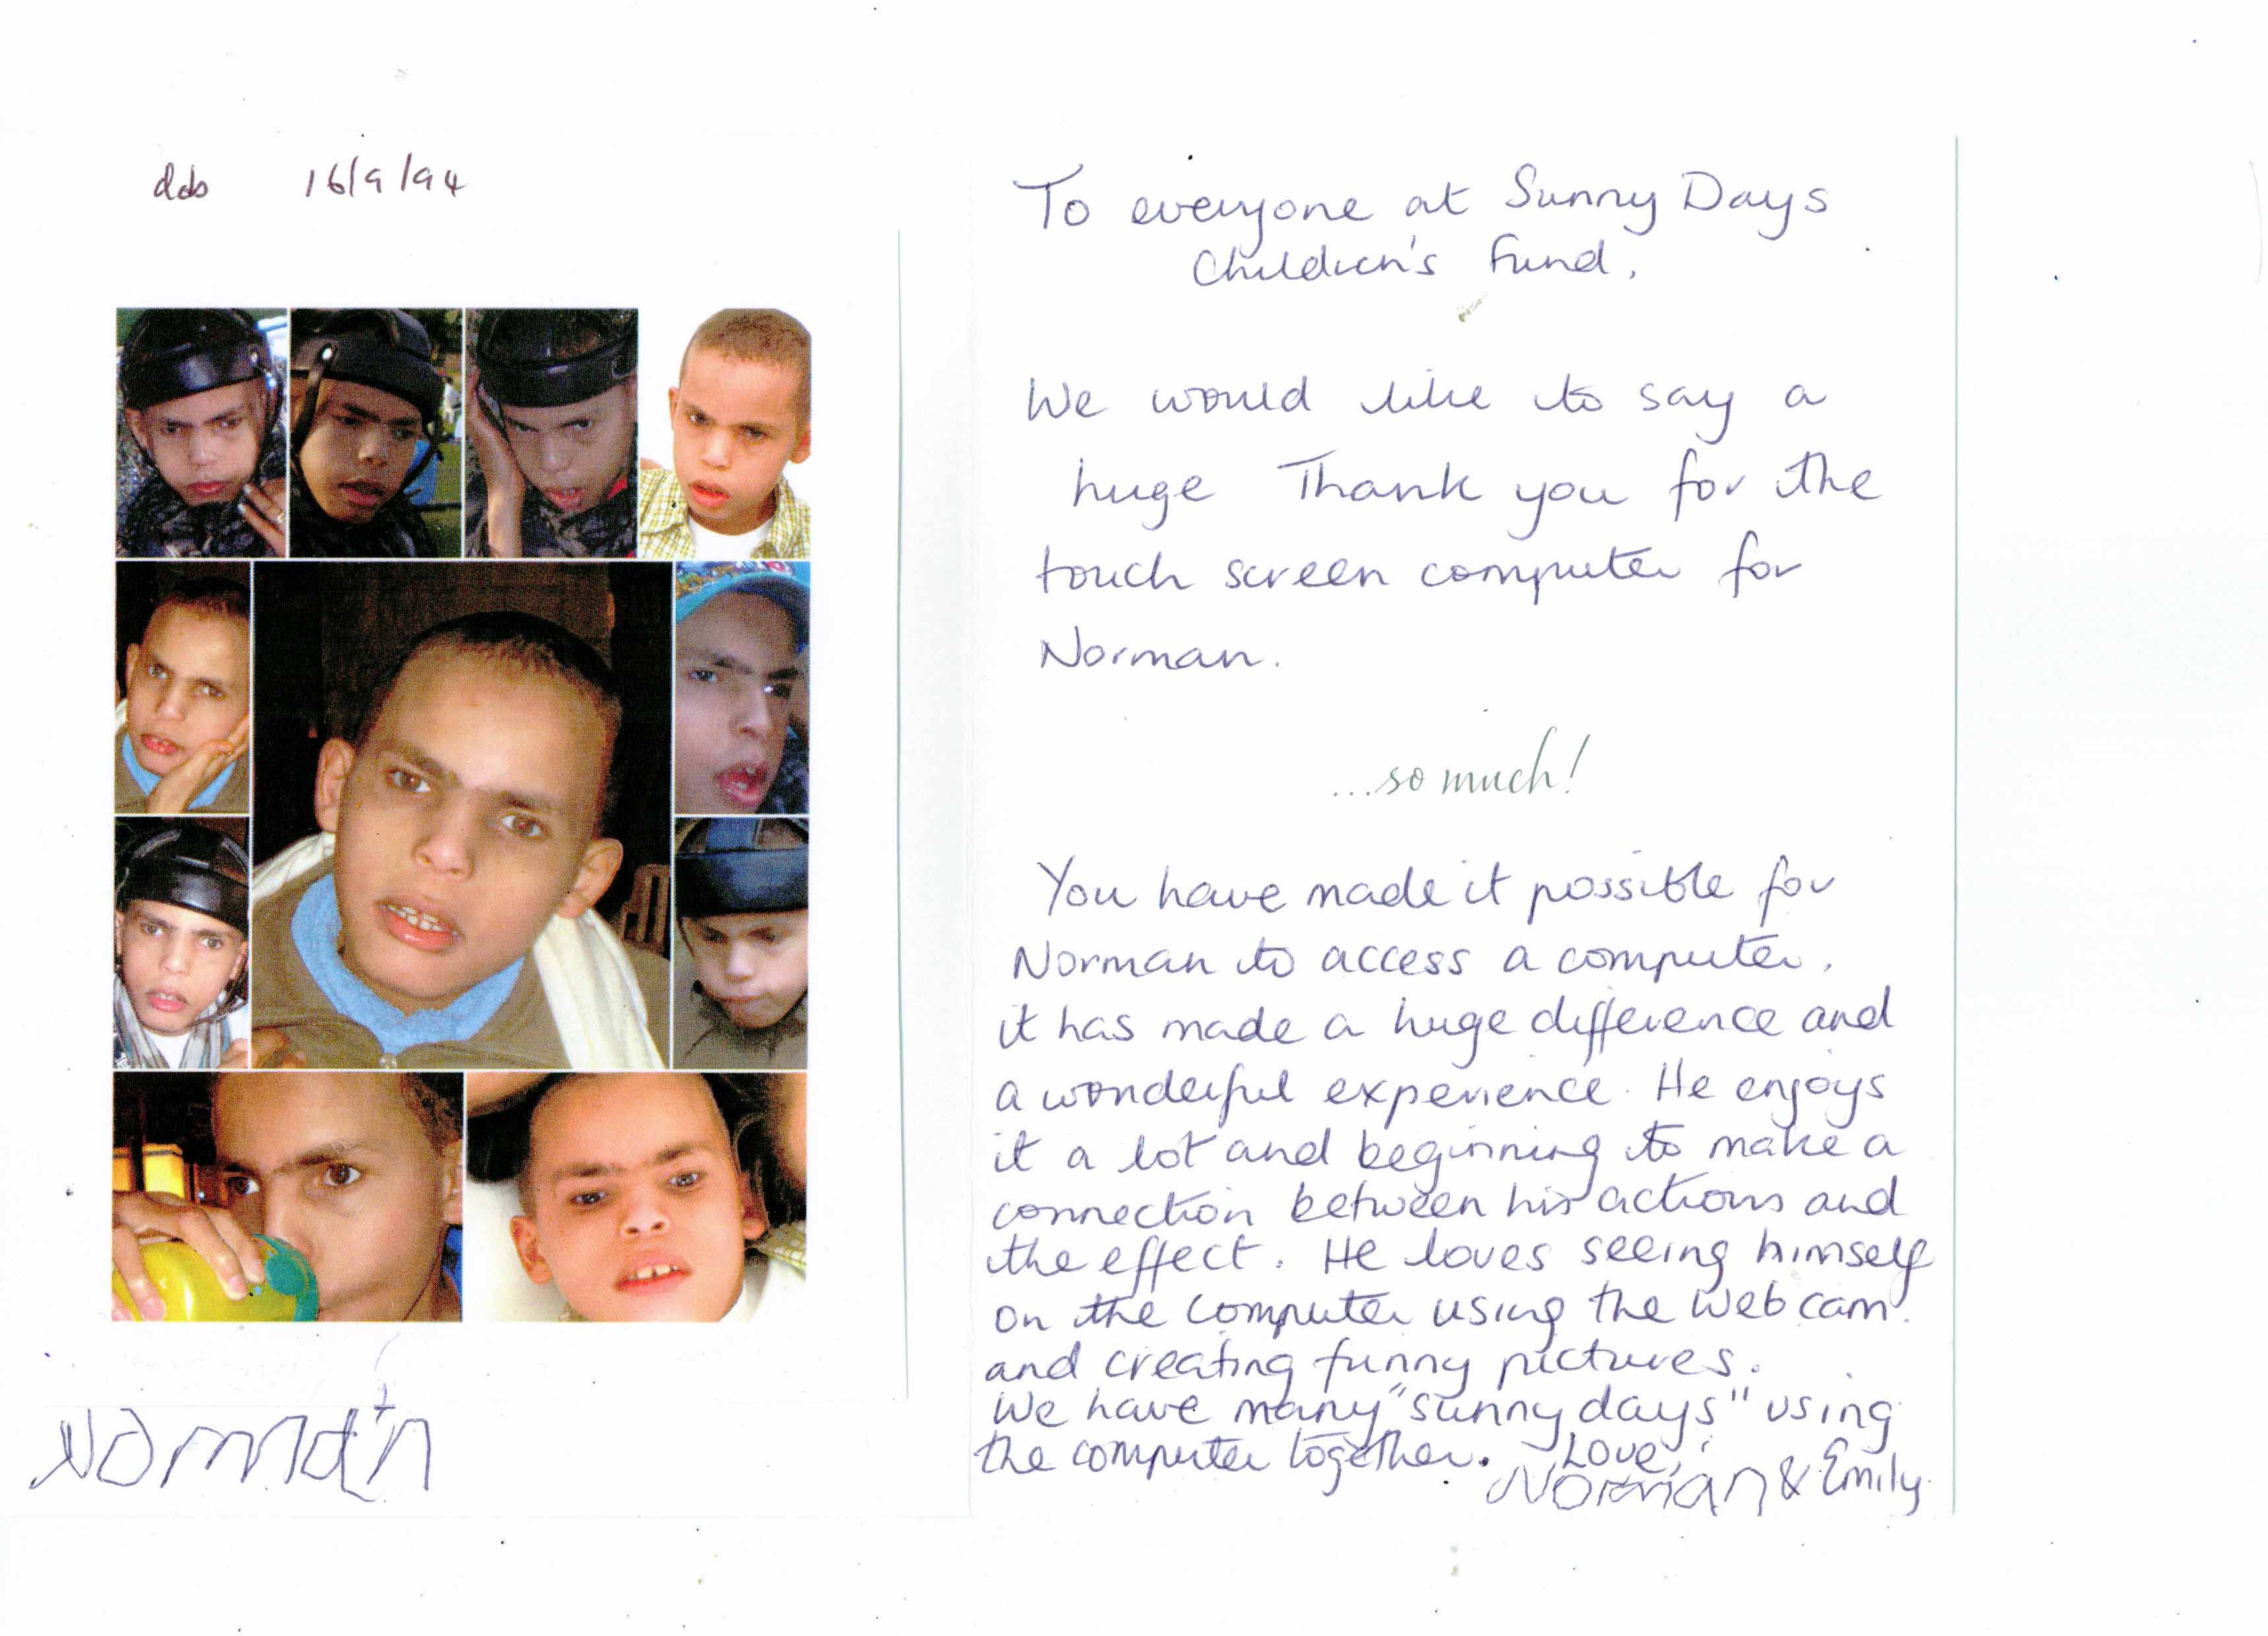 dob 16/9/94
Norman
To everyone at Sunny Days
Children's Fund,
We would like to say a
huge Thank you for the
touch screen computer for
Norman.
...so much!
You have made it possible for
Norman to access a computer,
it has made a huge difference and
a wonderful experience. He enjoys
it a lot and beginning to make a
connection between his actions and
the effect. He loves seeing himself
on the computer using the web cam
and creating funny pictures.
We have many "sunny days" using
the computer together. Love,
Norman & Emily